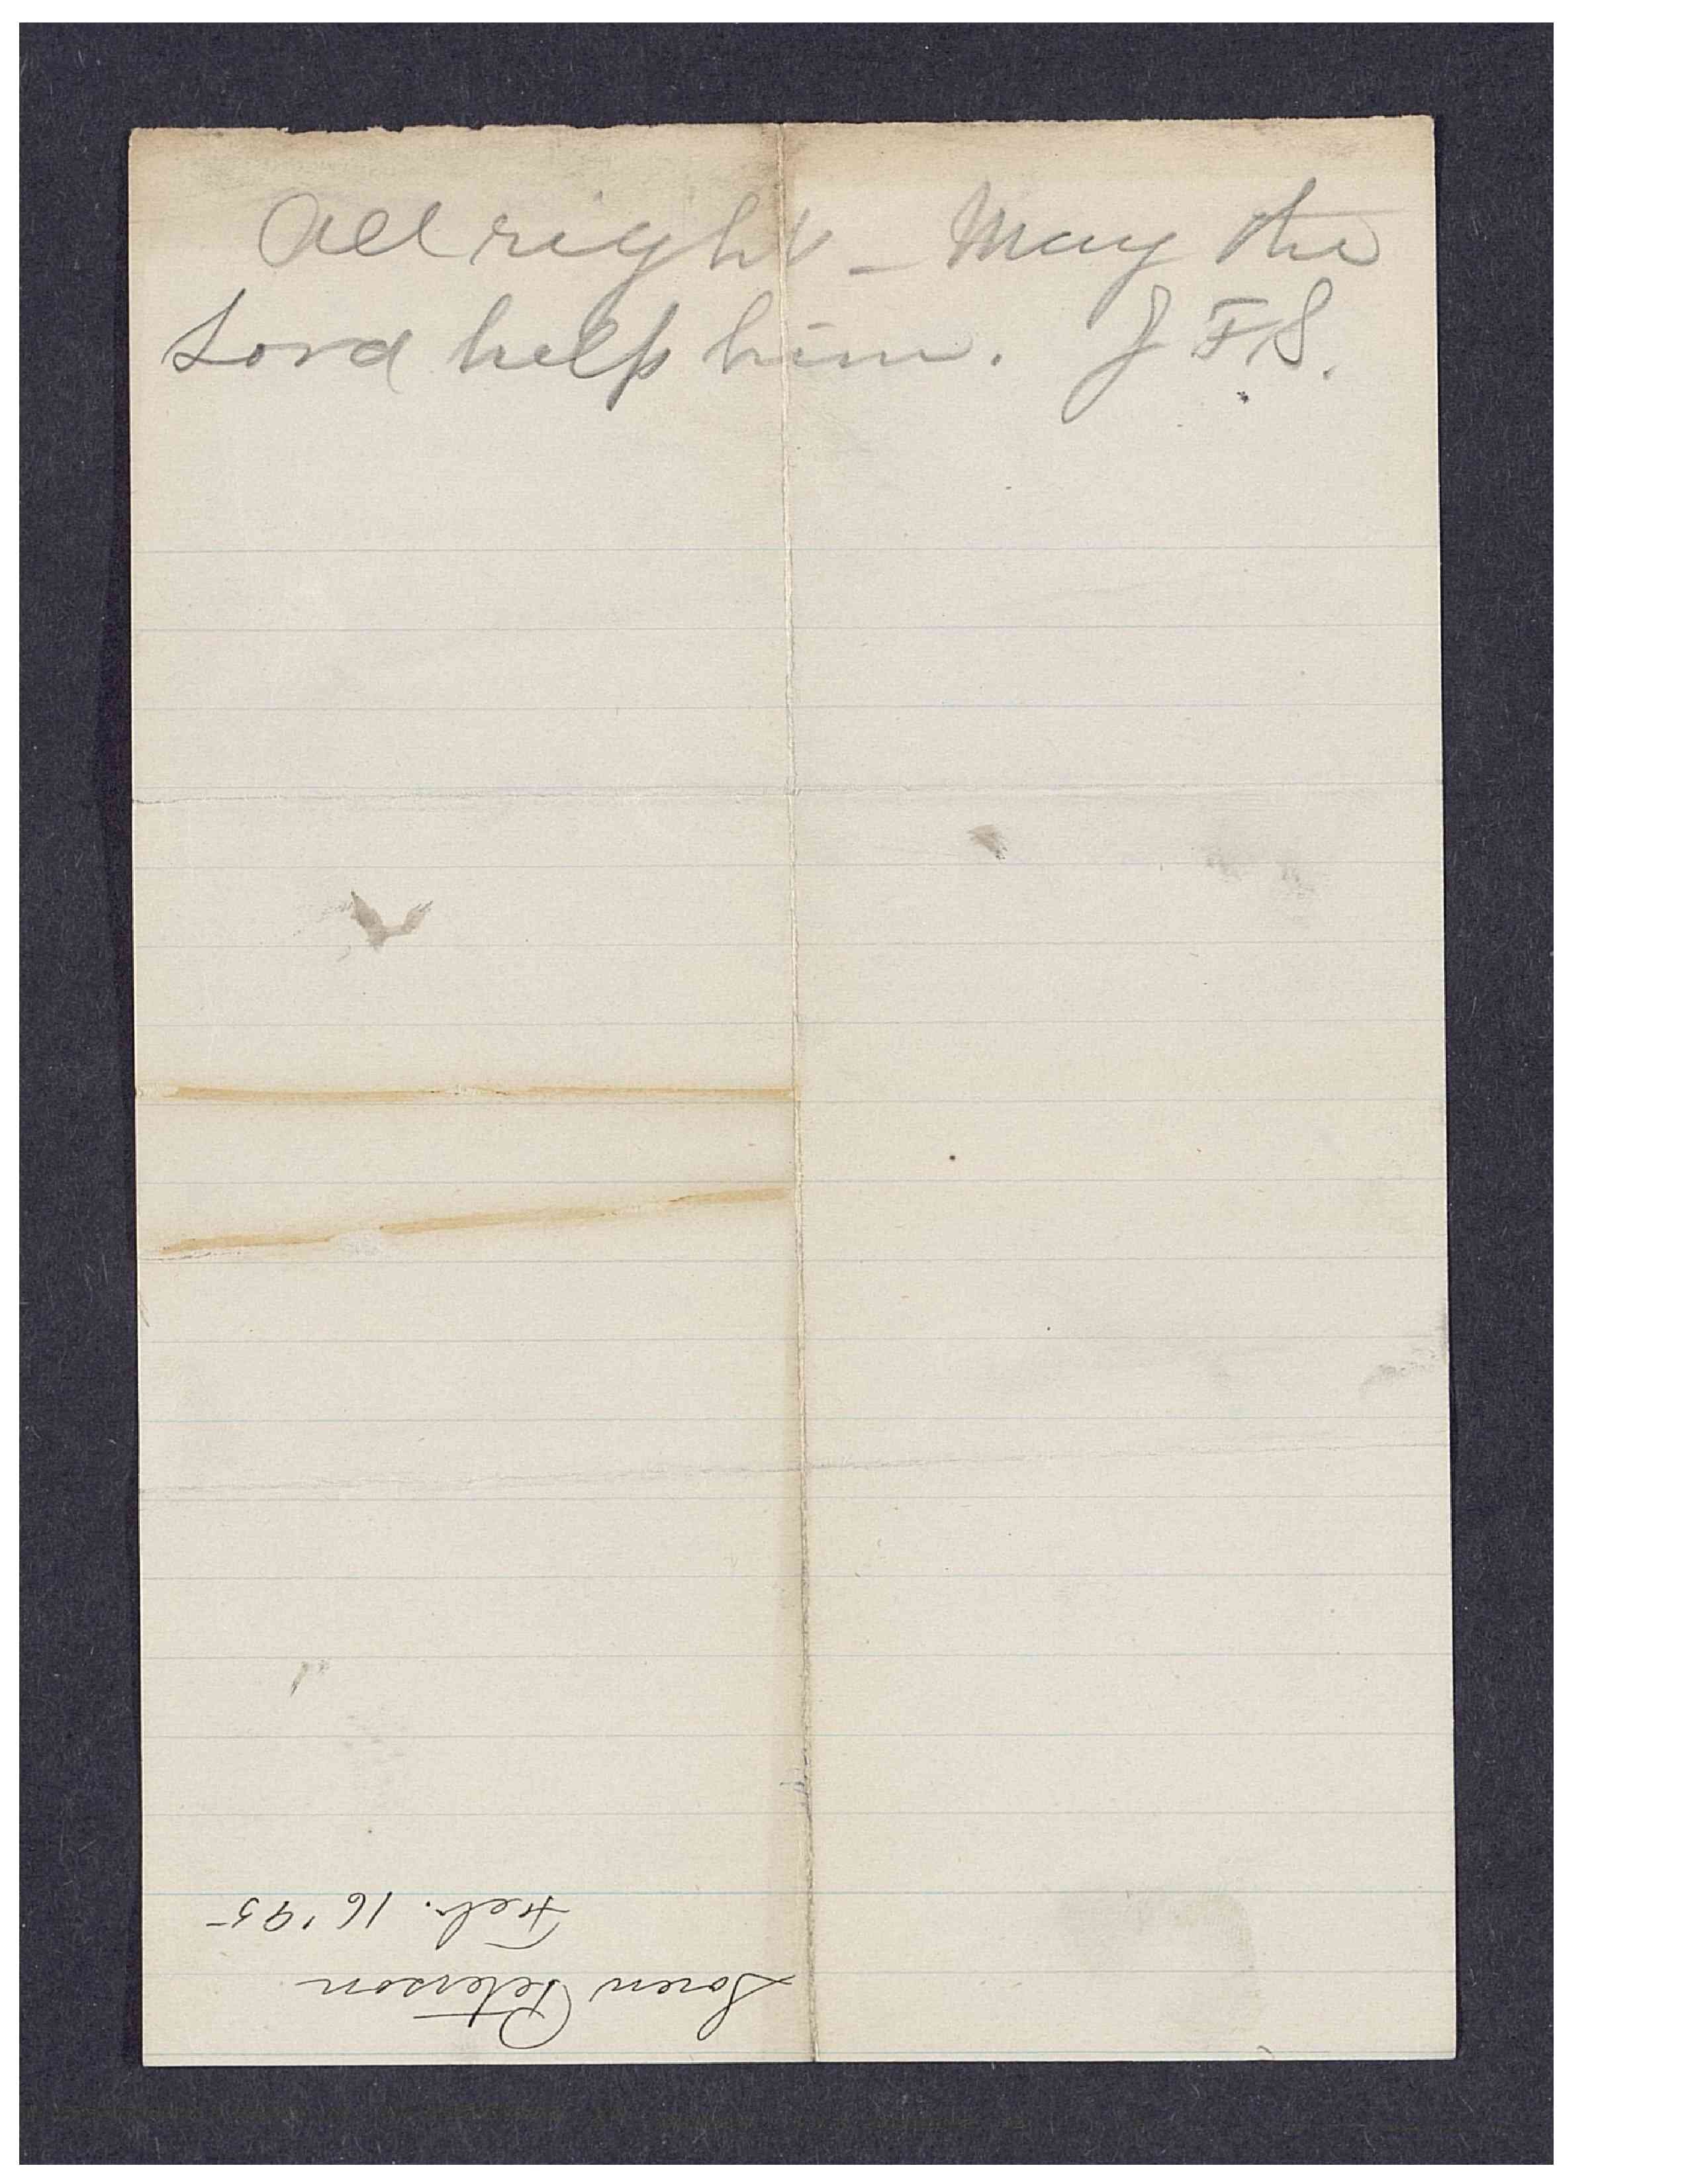 All right - May the
Lord help him. J F S.
Soren Peterson
Feb. 16 '95